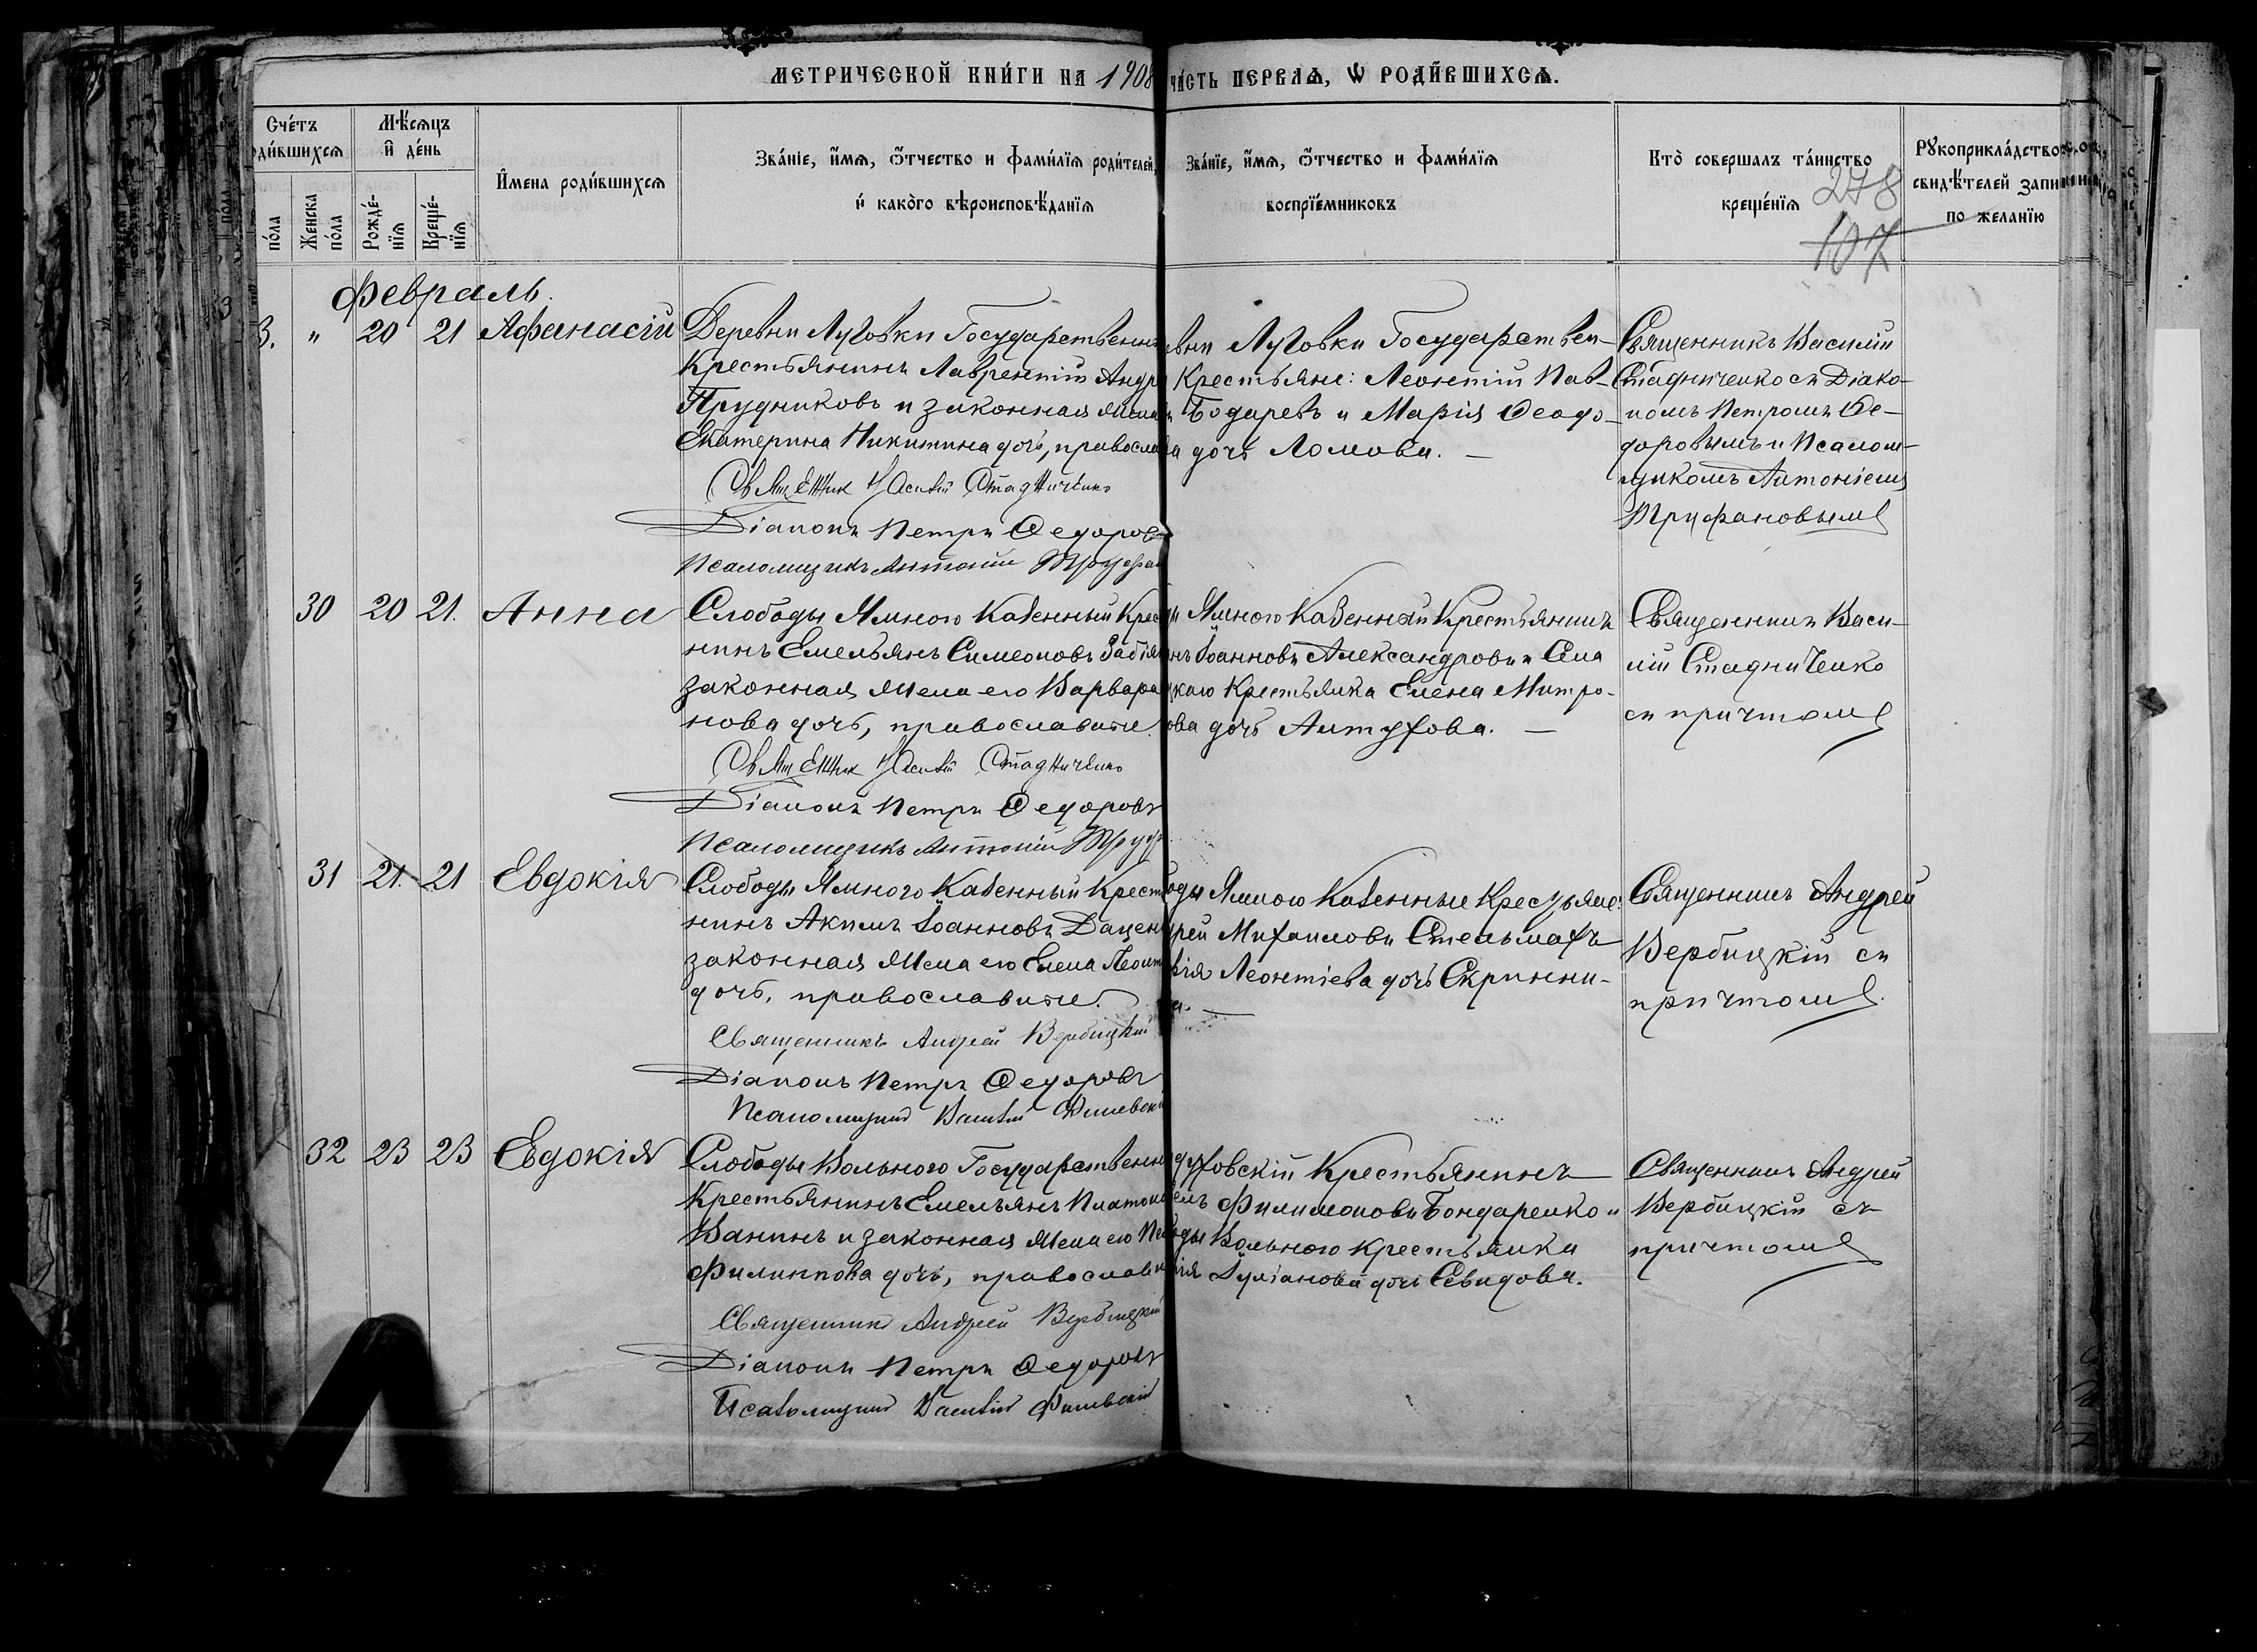 МЕТРИЧЕСКОЙ КНИ́ГИ НА 1908
ЧА́СТЬ ПЕРВАѦ, Ѡ РОДИ́ВШИХСѦ.
Сче́тъ
оди́вшихсѧ
Мѣ́сѧцъ
и҆ де́нь
И҆мена роди́вшихсѧ
Зва́нїе, и҆́мѧ, ѻ҆́тчество и фами́лїѧ роди́телей,
и҆ како́го вѣроисповѣ́данїѧ
Зва́нїе, и҆́мѧ, ѻ҆́тчество и фами́лїѧ
воспрїе́мниковъ
Кто̀ совершалъ та́инство
креще́нїѧ
Рꙋкоприкла́дство
свидѣ́телей запи
по жела́нїю
по́ла
Женска
по́ла
Рожде́-
нїѧ
Креще́-
нїѧ
278
107
Февраль.
3. " 20 21 Афанасій
Деревни Луговки Государственн
Крестьянинъ Лаврентій Андр
Прудниковъ и законная жена
Екатерина Никитина дочь, правосла
Священик Василій Стадниченко
Діаконъ Петръ Ѳедоров
Псаломщикъ Антоній Труфан
вни Луговки Государствен-
Крестьяне: Леонтій Пав-
Бодаревъ и Марія Ѳеодо-
а дочь Ломова. —
Священникъ Василій
Стадниченко съ Діако-
номъ Петромъ Ѳе-
доровымъ и Псалом-
щикомъ Антоніемъ
Труфановымъ
30 20 21. Анна
Слободы Ямного Казенный Крес
нинъ Емельянъ Симеоновъ Забія
законная жена его Варвара
нова дочь, православные.
Священик Василій Стадниченко
Діаконъ Петръ Ѳедоровъ
Псаломщикъ Антоній Труф
и Ямного Казенный Крестьянинъ
нъ Іоанновъ Александровъ и Сла
цкаго Крестьянка Елена Митро-
ова дочь Алтухова. —
Священникъ Васи-
лій Стадниченко
съ причтомъ
31 21. 21 Евдокія
Слободы Ямного Казенный Крест
нинъ Акимъ Іоанновъ Дацен
законная жена его Елена Леонт
дочь, православные.
Священникъ Андрей Вербицкій
Діаконъ Петръ Ѳедоровъ
Псаломщикъ Василій Филевскі
оды Ямного Казенные Крестьяне:
рей Михаиловъ Стельмахъ
кія Леонтіева дочь Скрынни-
а. —
Священникъ Андрей
Вербицкій съ
причтомъ.
32 23 23 Евдокія
Слободы Вольного Государственн
Крестьянинъ Емельянъ Платон
Ванинъ и законная жена его Пе
Филиппова дочь, православн
Священникъ Андрей Вербицкій
Діаконъ Петръ Ѳедоровъ
Псаломщикъ Василій Филевскій
духовскій Крестьянинъ
елъ Филимоновъ Бондаренко и
оды Вольного Крестьянка
ія Іуліанова дочь Севидова.
Священникъ Андрей
Вербицкій съ
причтомъ